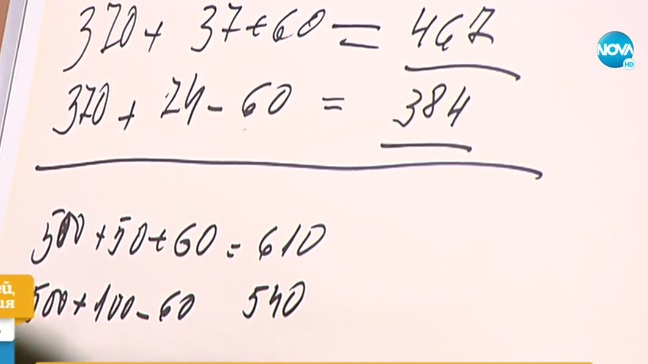 370 + 37 + 60 = 467
NOVA
HD
370 + 74 - 60 = 384
500 + 50 + 60 = 610
500 + 100 - 60 540
ей,
ия